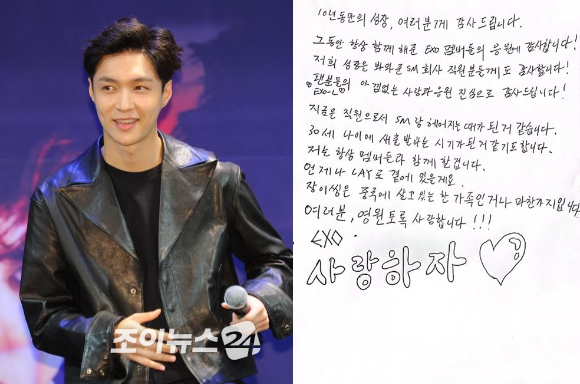 10년동만의 성장, 여러분게 감사드립니다.
그동안 항상 함께 해준 EXO 멤버들의 응원에 감사합니다!
저희 성장은 봐와준 SM 회사 직원분들게도 감사합니다!
팬분들의 아낌없는 사랑과응원 진심으로 감사드립니다!
EXO-L
지금은 직원으로서 SM 랑 헤어지는 때가 된거 같습니다.
30세 나이에 새출발하는 시기가 된거 같기도합니다.
저는 항상 멤버들과 함께 할겁니다.
언제나 LAY로 곁에 있을게요.
장이씽은 중국에 살고있는 한 가족인거나 마찬가지입니다
여러분, 영원토록 사랑합니다!!!
EXO.
사랑하자
조이뉴스24